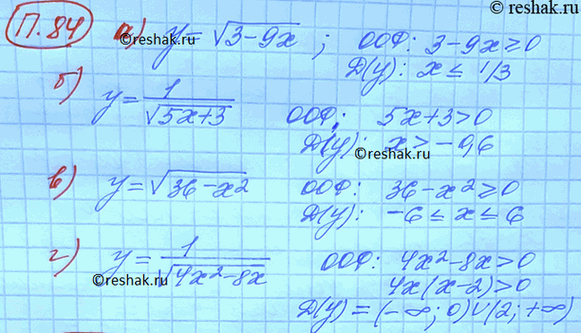 © reshak.ru
П.84 а) y = √(3-9x) ; ООФ: 3-9x ≥ 0
©reshak.ru
Д(y): x ≤ 1/3
б) y = 1/√(5x+3) ООФ: 5x+3 > 0
Д(y): x > -0,6
©reshak.ru
в) y = √(36-x²) ООФ: 36-x² ≥ 0
Д(y): -6 ≤ x ≤ 6
г) y = 1/√(4x²-8x) ООФ: 4x²-8x > 0
©reshak.ru
4x(x-2) > 0
Д(y) = (-∞; 0) ∪ (2; +∞)